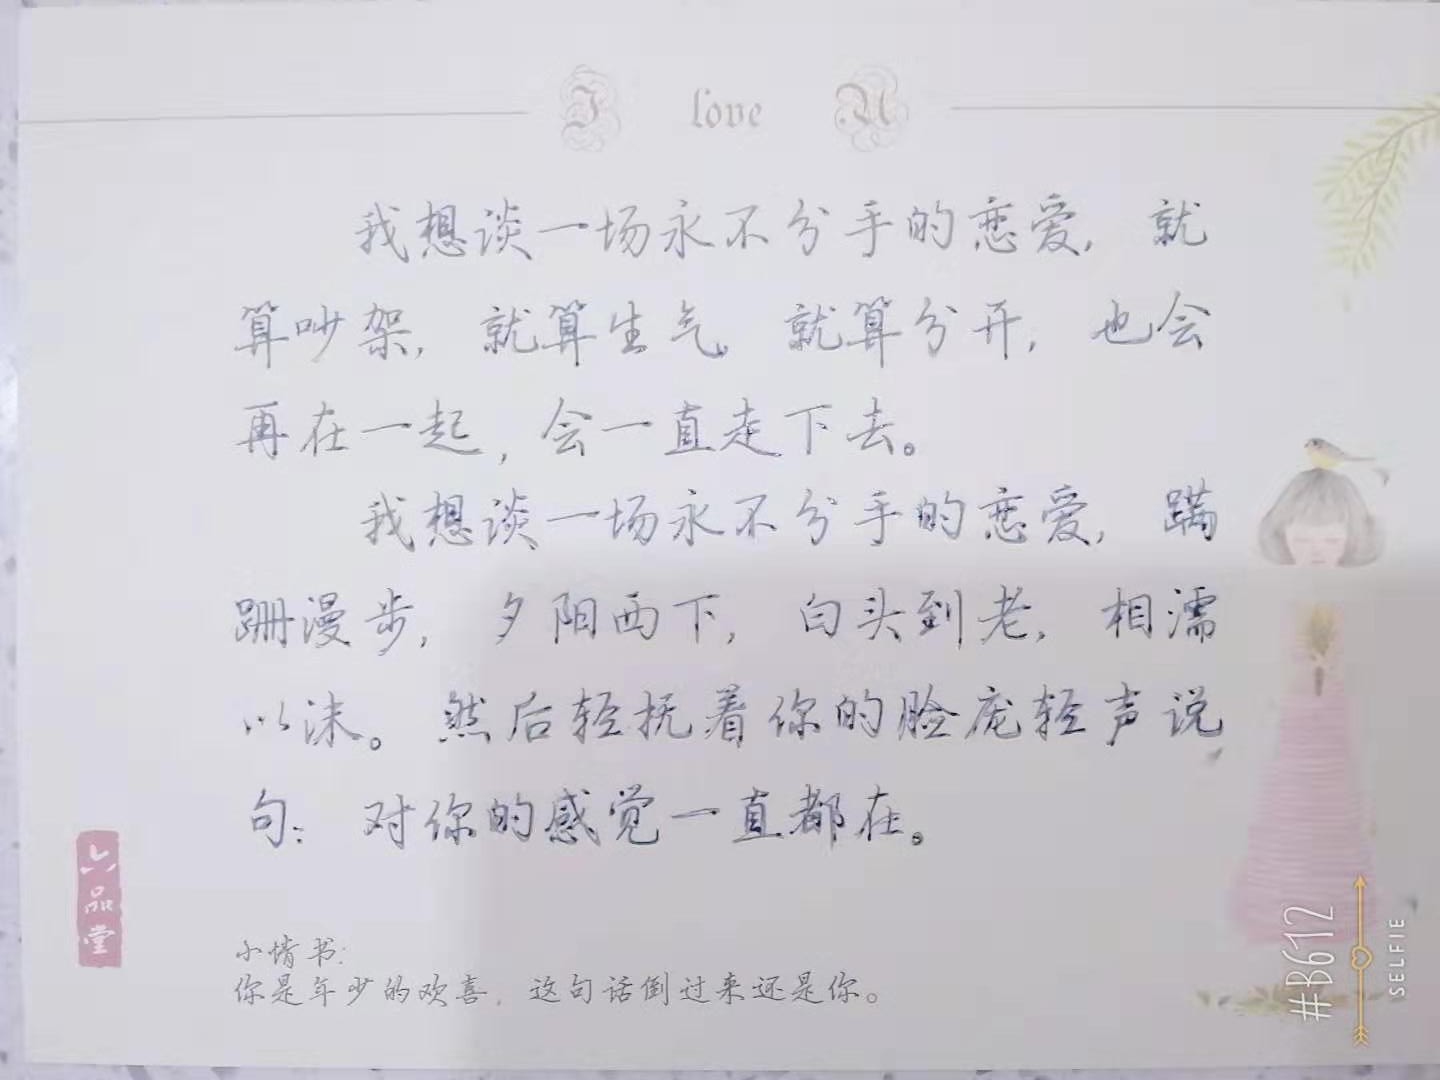 I love U
我想谈一场永不分手的恋爱，就
算吵架，就算生气，就算分开，也会
再在一起，会一直走下去。
我想谈一场永不分手的恋爱，蹒
跚漫步，夕阳西下，白头到老，相濡
以沫。然后轻抚着你的脸庞轻声说
句：对你的感觉一直都在。
六品堂
小情书：
你是年少的欢喜，这句话倒过来还是你。
#B612
SELFIE